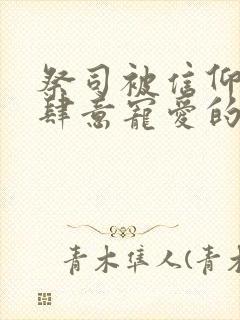 祭司被信仰
肆意寵愛的
青木隼人(青木